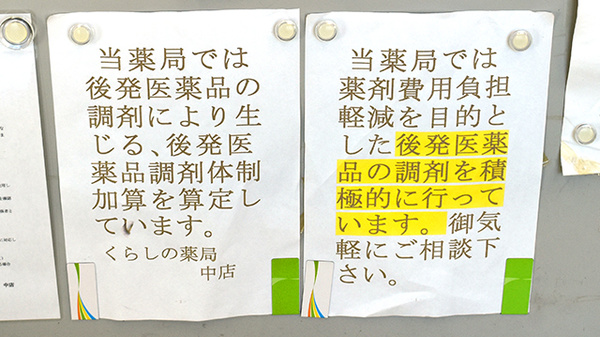 当薬局では
後発医薬品の
調剤により生
じる、後発医
薬品調剤体制
加算を算定し
ています。
くらしの薬局
中店
当薬局では
薬剤費用負担
軽減を目的と
した後発医薬
品の調剤を積
極的に行って
います。御気
軽にご相談下
さい。
中店